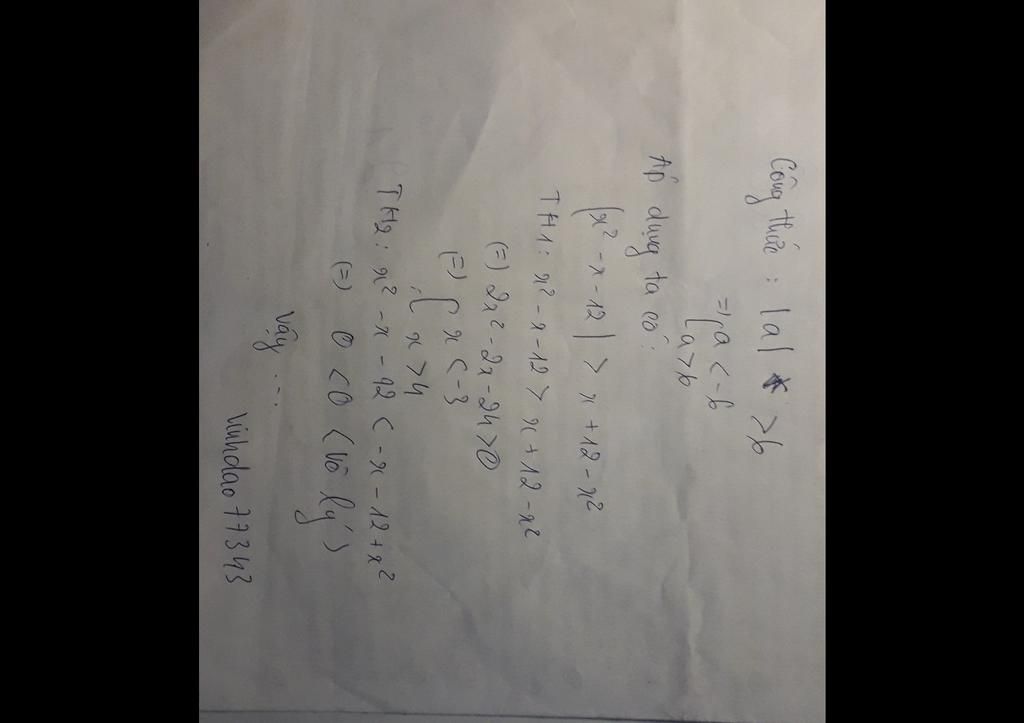 Công thức : |a| > b
(=) [ a < -b
[ a > b
Áp dụng ta có :
|x² - x - 12| > x + 12 - x²
TH1 : x² - x - 12 > x + 12 - x²
(=) 2x² - 2x - 24 > 0
(=) [ x < -3
[ x > 4
TH2 : x² - x - 12 < -x - 12 + x²
(=) 0 < 0 (vô lý)
Vậy ...
Vinhdao77343